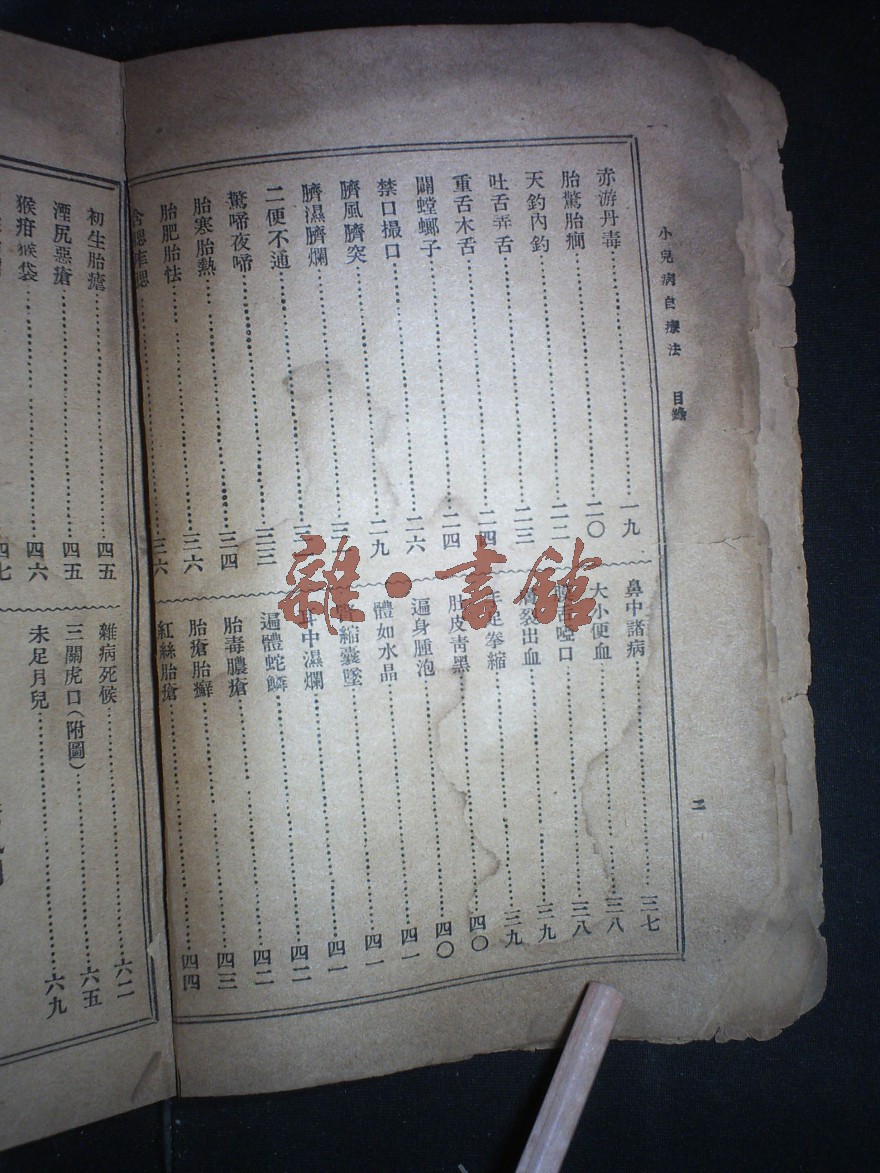 小兒病自療法　目錄
二
赤游丹毒……一九
胎驚胎癎……二〇
天釣內釣……二二
吐舌弄舌……二三
重舌木舌……二四
鬭螳螂子……二四
禁口撮口……二六
臍風臍突……二九
臍濕臍爛……三
二便不通……三
驚啼夜啼……三三
胎寒胎熱……三四
胎肥胎怯……三六
……三六
鼻中諸病……三七
大小便血……三八
啞口……三八
裂出血……三九
足拳縮……三九
肚皮靑黑……四〇
遍身腫泡……四〇
體如水晶……四一
縮囊墜……四一
中濕爛……四一
遍體蛇鱗……四二
胎毒膿瘡……四二
胎瘡胎癬……四三
紅絲胎瘡……四四
初生胎瘡……四五
湮尻惡瘡……四五
猴疳猴袋……四六
四七
雜病死候……六二
三關虎口(附圖)……六五
未足月兒……六九
雜·書館